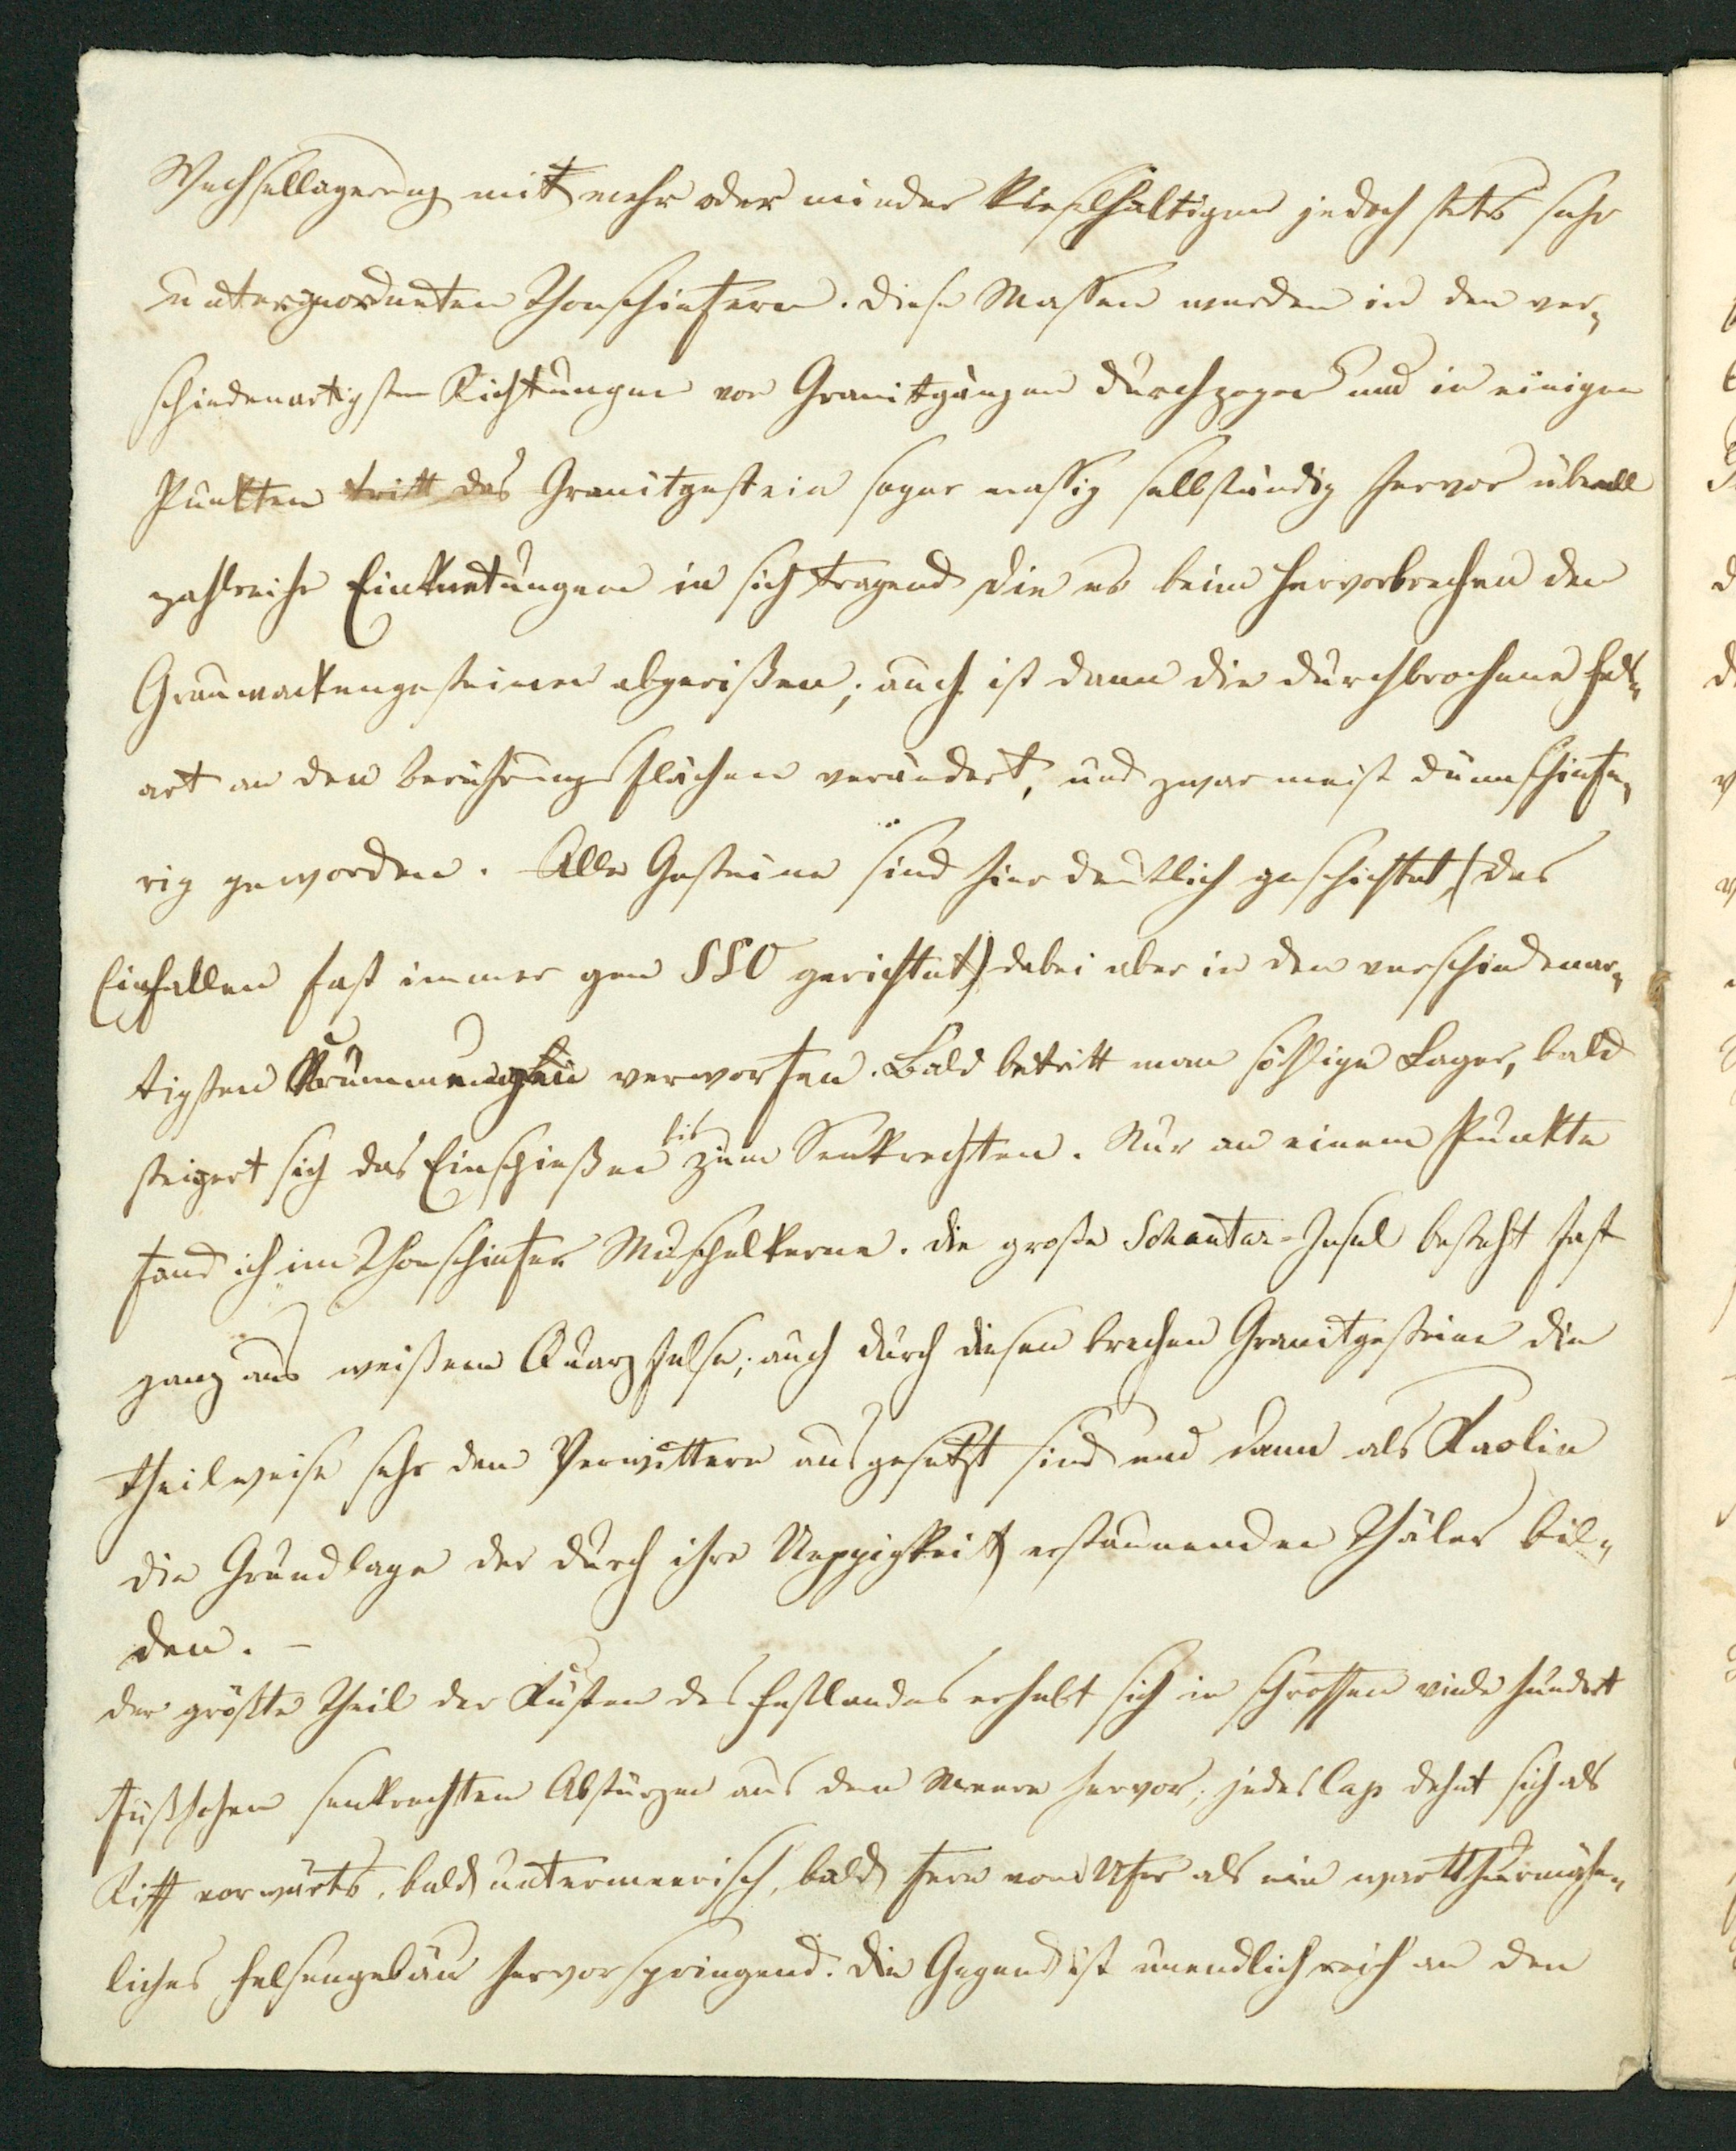 Wechsellagerung mit mehr oder minder kieselhaltigen jedoch stets sehr
untergeordneten Thonschiefern. Diese Massen werden in den ver-
schiedenartigsten Richtungen von Granitgängen durchzogen und in einigen
Punkten tritt das Granitgestein sogar massig selbständig hervor überall
zahlreiche Einknetungen in sich tragend die es beim Hervorbrechen den
Grauwackengesteinen abgerißen; auch ist dann die durchbrochene Fels-
art an den Berührungsflächen verändert, und zwar meist dünnschiefe-
rig geworden. Alle Gesteine sind hier deutlich geschichtet, (das
Einfallen fast immer gen SSO gerichtet) dabei aber in den verschiedenar-
tigsten Krümmungen verworfen. Bald betritt man söhlige Lager, bald
steigert sich das Einschießen bis zum Senkrechten. Nur an einem Punkte
fand ich im Thonschiefer Muschelkerne. Die große Schantar-Insel besteht fast
ganz aus weißem Quarzfelse; auch durch diesen brechen Granitgesteine die
theilweise sehr dem Verwittern ausgesetzt sind und dann als Kaolin
die Grundlage der durch ihre Ueppigkeit erstaunenden Thäler bil-
den. –
Der größte Theil der Küsten des Festlandes erhebt sich in schroffen viele hundert
fußhohen senkrechten Abstürzen aus dem Meere hervor; jedes Cap dehnt sich als
Riff vorwärts, bald untermeerisch, bald fern vom Ufer als ein wartthurmähn-
liches Felsengebäu hervorspringend. Die Gegend ist unendlich reich an den